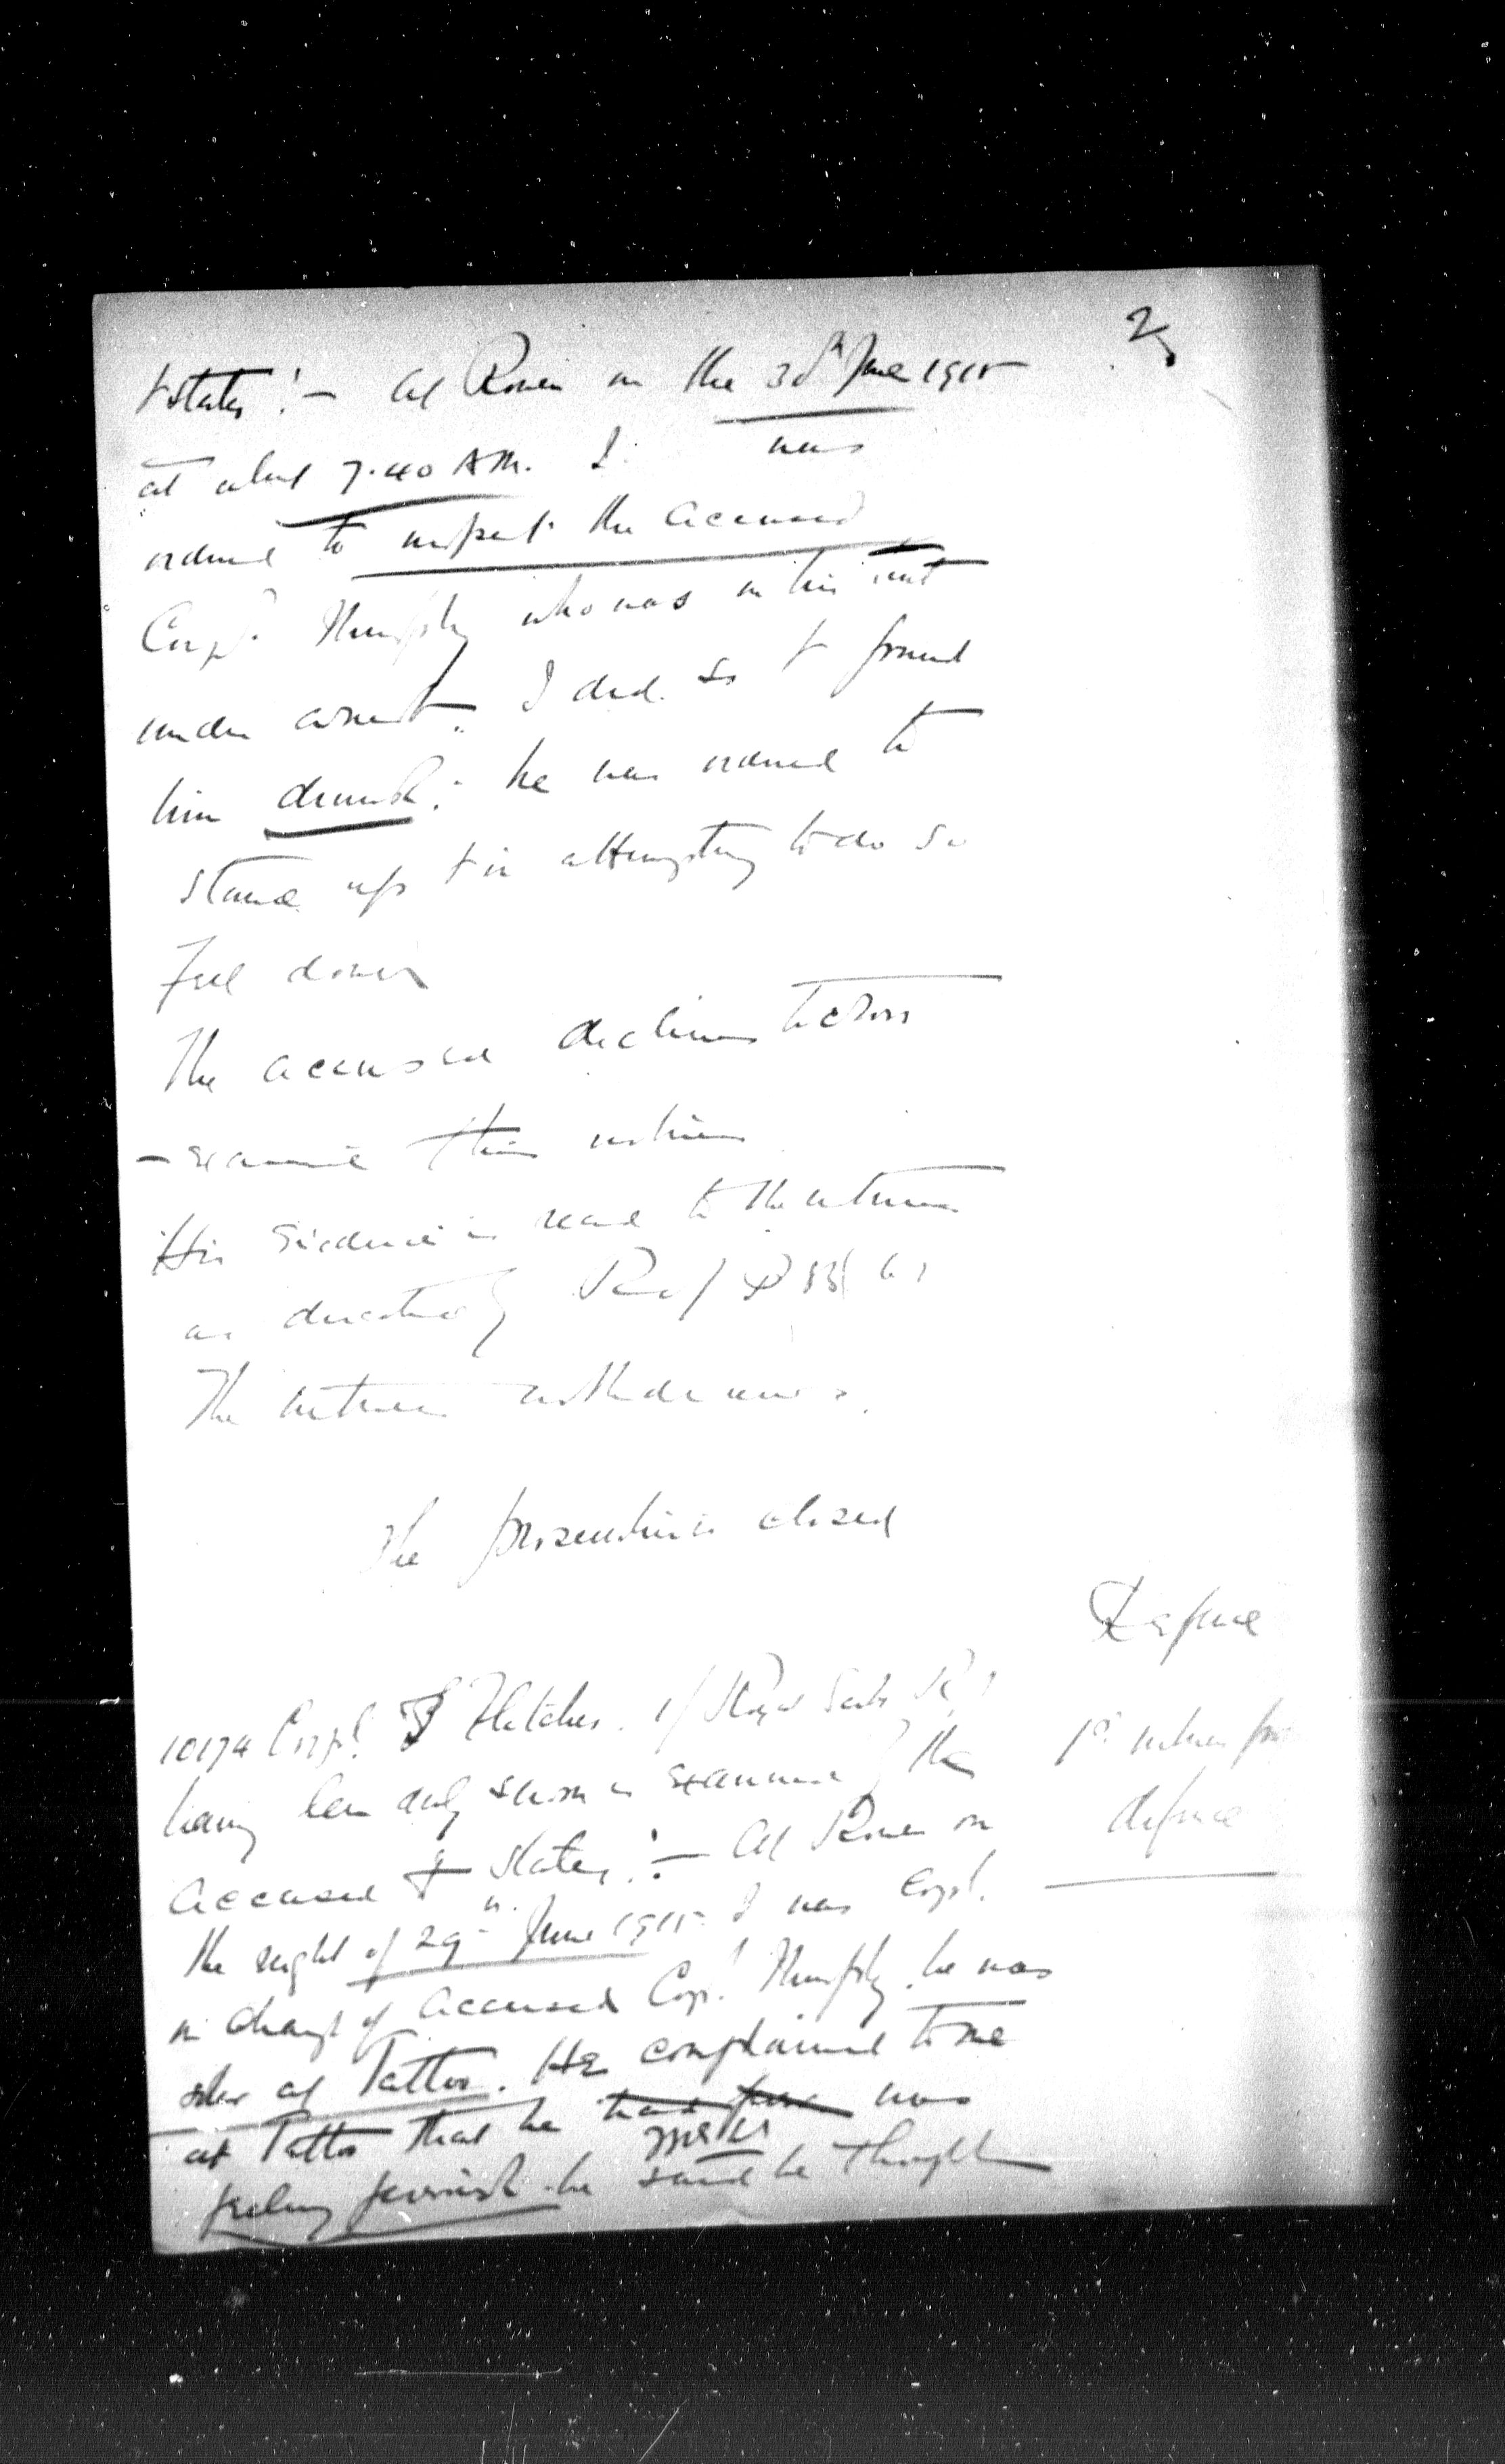 2
& states :- At Rouen on the 30th June 1915
at about 7.40 AM. I was
ordered to inspect the accused
Corpl. Murphy who was in his tent
under arrest. I did so & found
him drunk; he was ordered to
stand up & in attempting to do so
fell down
The accused declines to cross
- examine this witness
His evidence is read to the witness
as directed by R of P 83
The witness withdraws.
The prosecution is closed
Defence
10174 Corpl. Fletcher. 1/ Royal Scots
having been duly sworn is examined by the
1st witness for
accused & states :- At Rouen on
defence
the night of 29th June 1915 I was Corpl.
in charge of accused Corpl. Murphy. he was
sober at Tattoo. He complained to me
at Tattoo that he was
feeling feverish. he said he thought